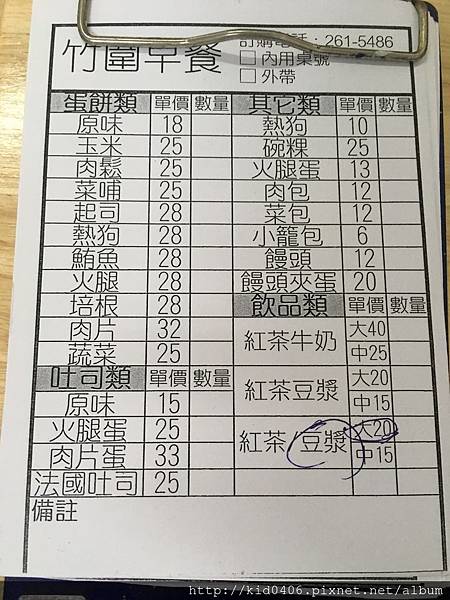 竹圍早餐
訂購電話：261-5486
□內用桌號
□外帶
蛋餅類 單價 數量
原味 18
玉米 25
肉鬆 25
菜哺 25
起司 28
熱狗 28
鮪魚 28
火腿 28
培根 28
肉片 32
蔬菜 25
吐司類 單價 數量
原味 15
火腿蛋 25
肉片蛋 33
法國吐司 25
其它類 單價 數量
熱狗 10
碗粿 25
火腿蛋 13
肉包 12
菜包 12
小籠包 6
饅頭 12
饅頭夾蛋 20
飲品類 單價 數量
紅茶牛奶 大40
中25
紅茶豆漿 大20
中15
紅茶/豆漿 大20
中15
備註
http://kid0406.pixnet.net/album